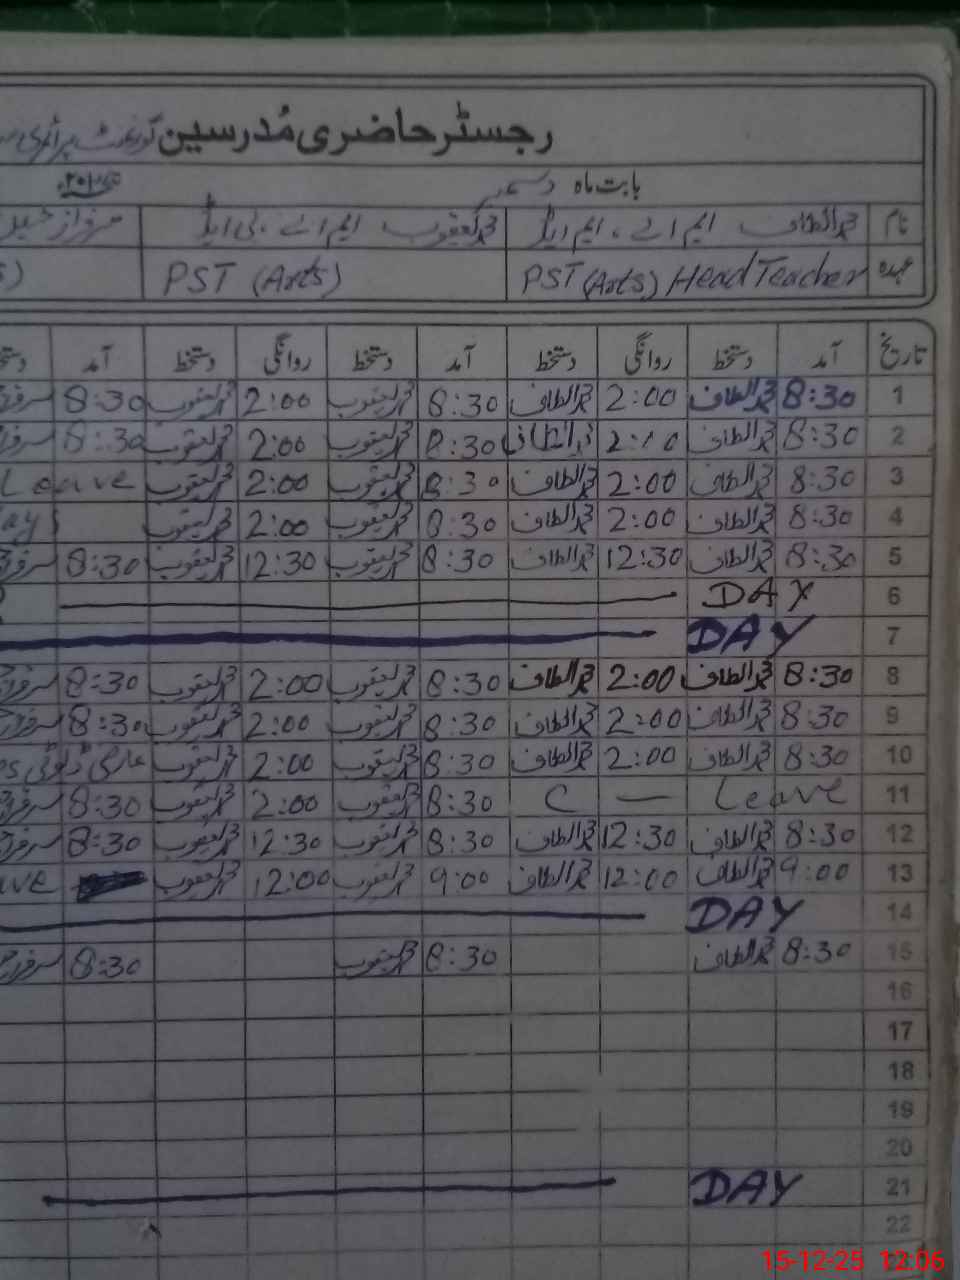 رجسٹر حاضری مُدرسین گورنمنٹ پرائمری
بابت ماہ دسمبر
نام محمد الطاف ایم اے، ایم ایڈ محمد یعقوب ایم اے، بی ایڈ سرفراز
عہدہ PST (Arts) Head Teacher PST (Arts)
تاریخ آمد دستخط روانگی دستخط آمد دستخط روانگی دستخط آمد
1 8:30 محمد الطاف 2:00 محمد الطاف 8:30 محمد یعقوب 2:00 محمد یعقوب 8:30
2 8:30 محمد الطاف 8:30 محمد یعقوب 2:00 محمد یعقوب 8:30
3 8:30 محمد الطاف 2:00 محمد الطاف 8:30 محمد یعقوب 2:00 محمد یعقوب Leave
4 8:30 محمد الطاف 2:00 محمد الطاف 8:30 محمد یعقوب 2:00 محمد یعقوب
5 8:30 محمد الطاف 12:30 محمد الطاف 8:30 محمد یعقوب 12:30 محمد یعقوب 8:30
6 DAY
7 DAY
8 8:30 محمد الطاف 2:00 محمد الطاف 8:30 محمد یعقوب 2:00 محمد یعقوب 8:30
9 8:30 محمد الطاف 2:00 محمد الطاف 8:30 محمد یعقوب 2:00 محمد یعقوب 8:30
10 8:30 محمد الطاف 2:00 محمد الطاف 8:30 محمد یعقوب 2:00 محمد یعقوب عارضی ڈیوٹی
11 C — Leave 8:30 محمد یعقوب 2:00 محمد یعقوب 8:30
12 8:30 محمد الطاف 12:30 محمد الطاف 8:30 محمد یعقوب 12:30 محمد یعقوب 8:30
13 9:00 محمد الطاف 12:00 محمد الطاف 9:00 محمد یعقوب 12:00 محمد یعقوب
14 DAY
15 8:30 محمد الطاف 8:30 محمد یعقوب 8:30
16
17
18
19
20
21 DAY
22
15-12-25 12:06